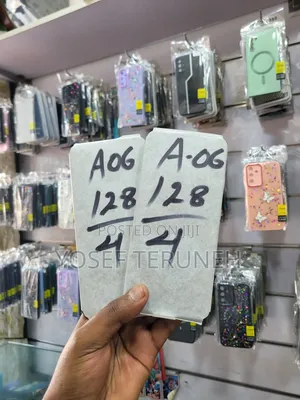 A06
128
4
A-06
128
4
POSTED ON JIJI
YOSEF TERUNEH